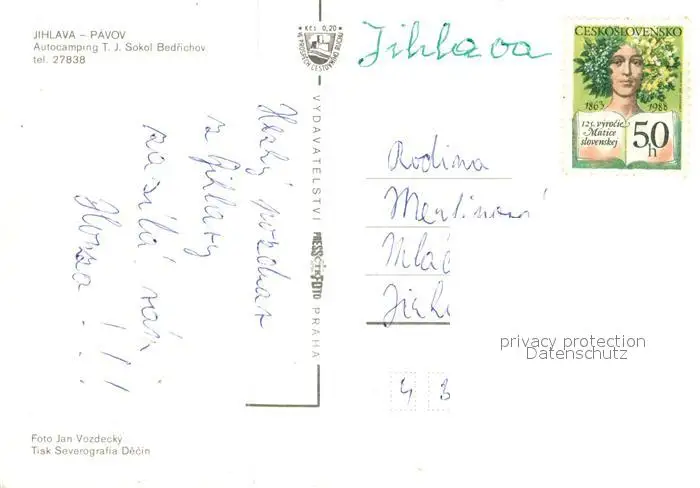 JIHLAVA – PÁVOV
Autocamping T. J. Sokol Bedřichov
tel. 27838
Kčs 0,20
VE PROSPĚCH CESTOVNÍHO RUCHU
Jihlava
ČESKOSLOVENSKO
1863 1988
125. výročie
Matice
slovenskej
50
h
Hezký pozdrav
z Jihlavy
zasílá vám
Honza !!!
VYDAVATELSTVÍ PRESSFOTO PRAHA
Rodina
Jihl
4 3
privacy protection
Datenschutz
Foto Jan Vozdecký
Tisk Severografia Děčín